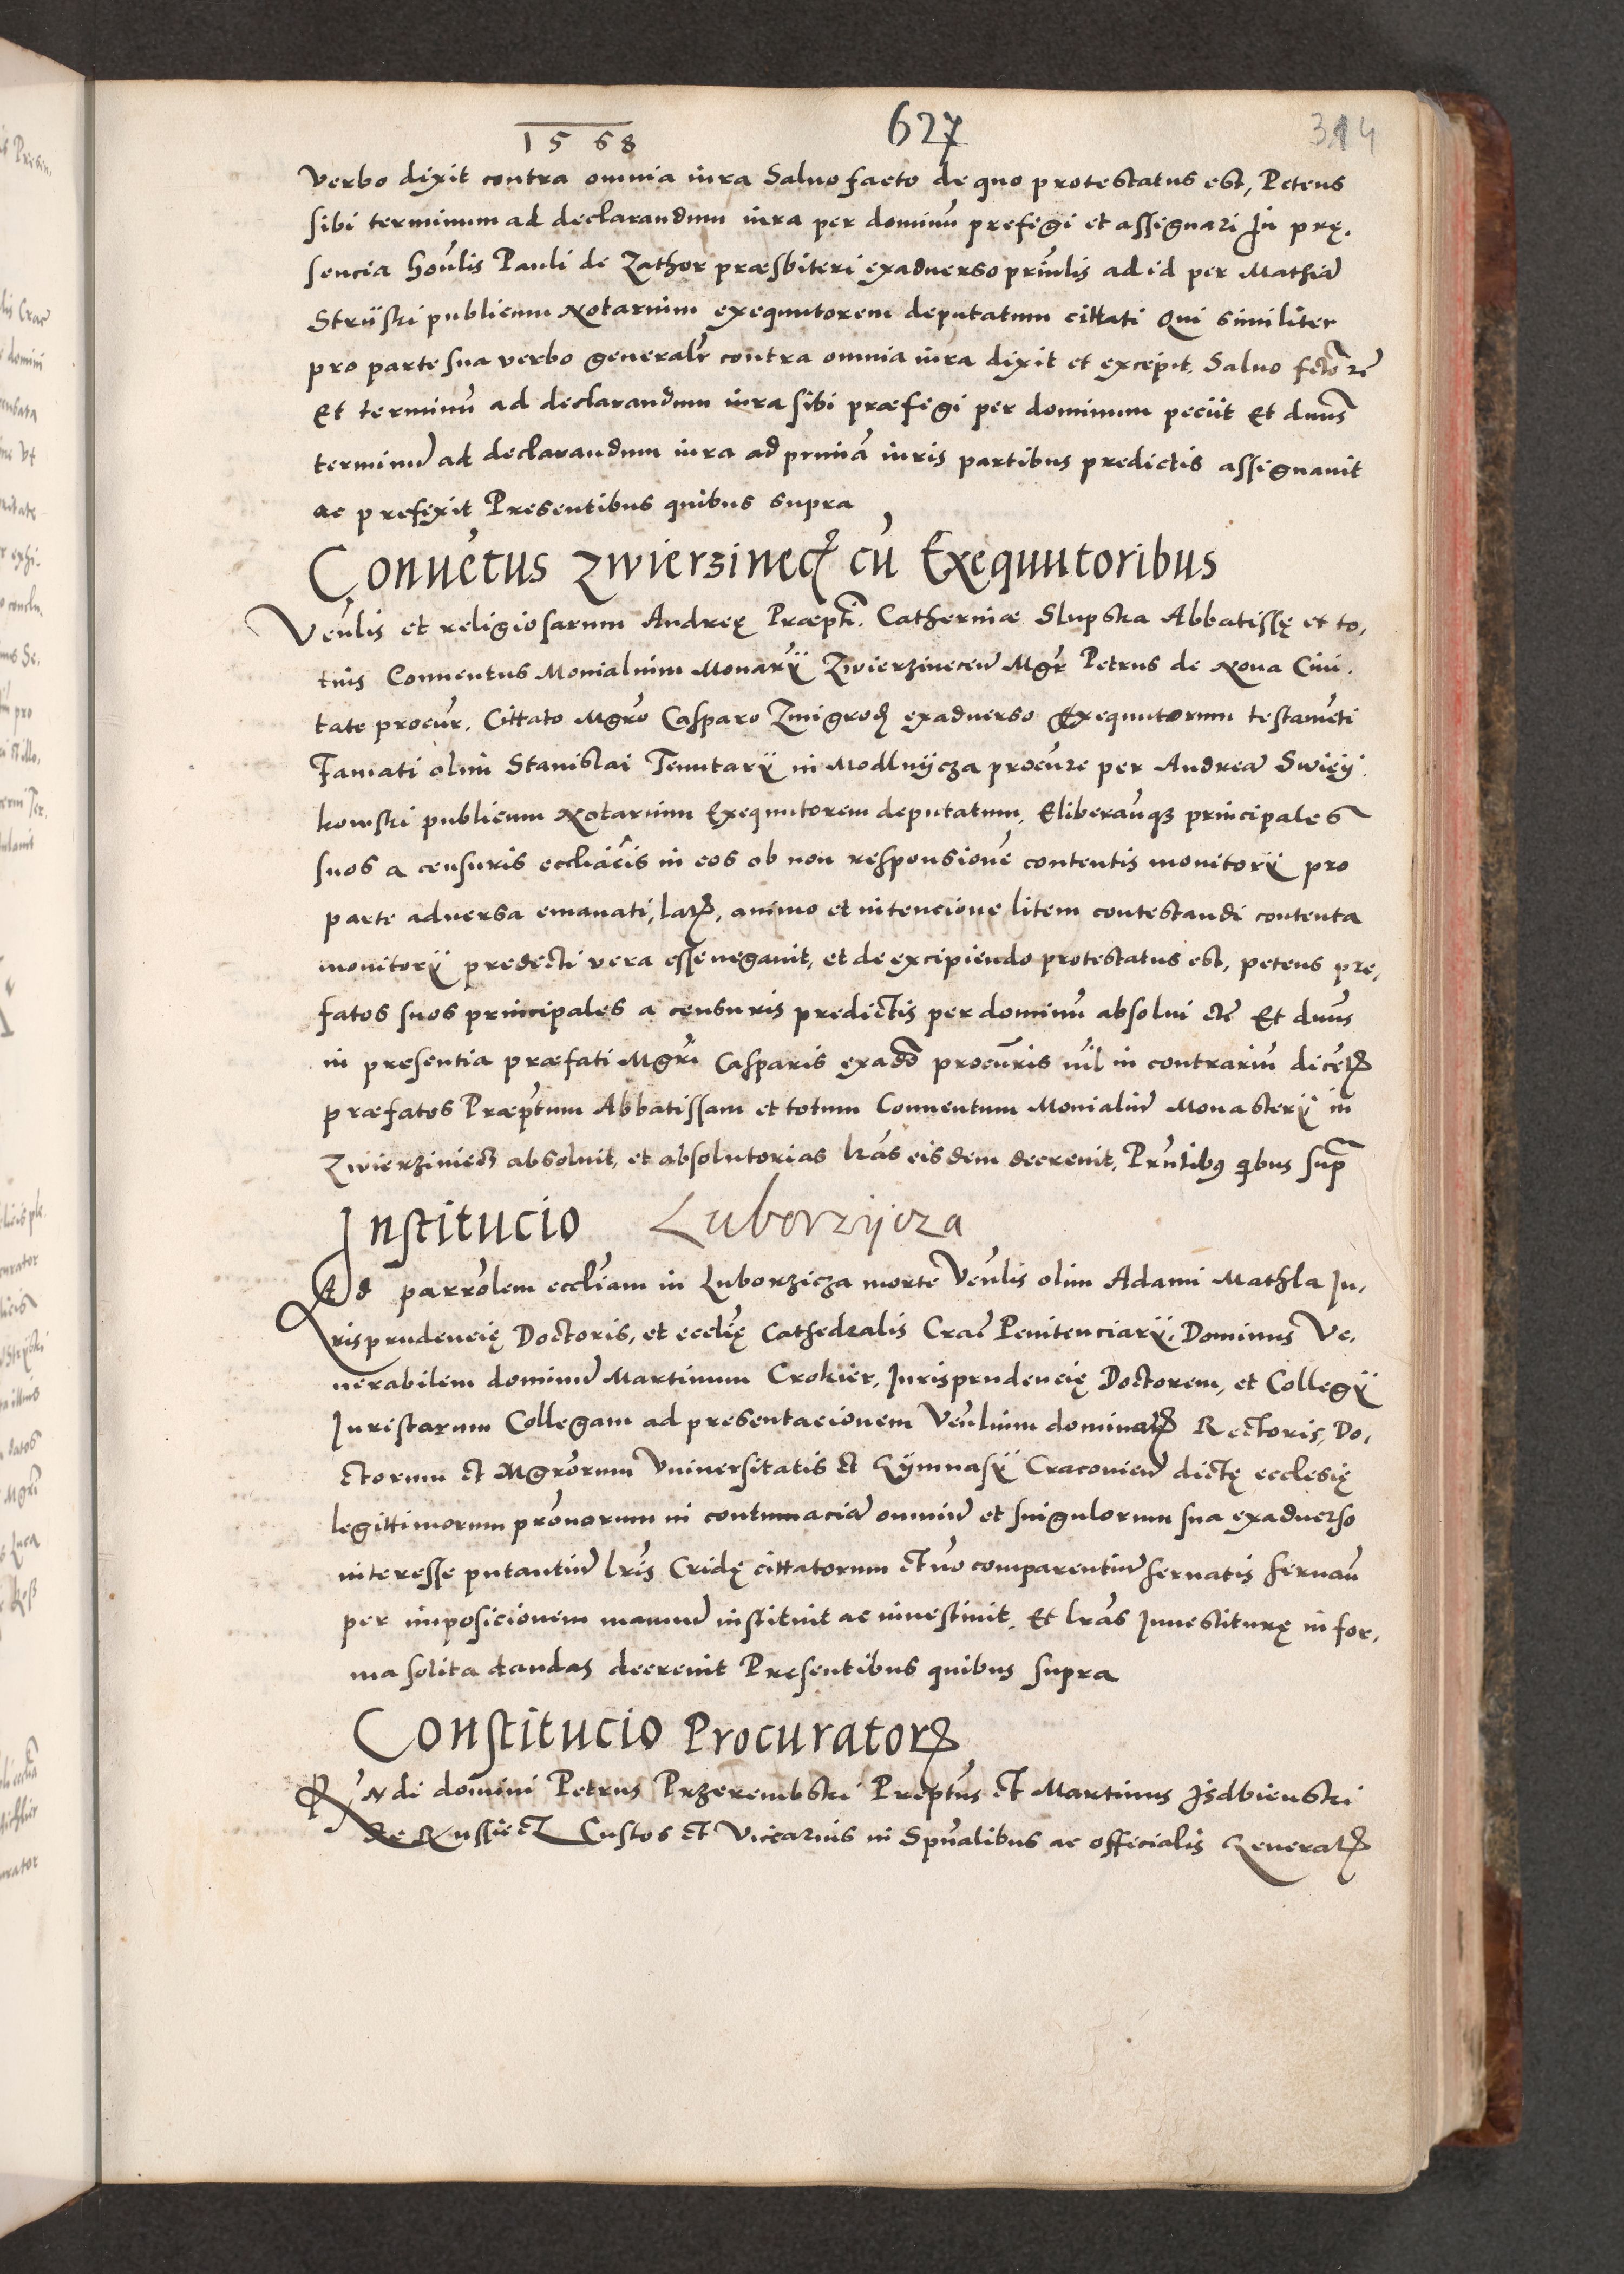 1568 627 314
verbo dixit contra omnia iura Saluo facto de quo protestatus est, Petens
sibi terminum ad declarandum iura per dominũ prefigi et assignari In prę,
sencia Honĩlis Pauli de Zathor præsbiteri exaduerso prinĩlis ad id per Mathiã
Strÿski publicum Notarium exequutorem deputatum cittati Qui similiter
pro parte sua verbo generalr̃ contra omnia iura dixit et excepit. Saluo
Et terminũ ad declarandum iura sibi præfigi per dominum peciit Et dnũs
terminũ ad declarandum iura ad primã iuris partibus predictis assignauit
ac prefixit Presentibus quibus supra
Conuẽtus Zwierzinecꝭ cũ Exequutoribus
Venĩlis et religiosarum Andreę Præptĩ. Catherinæ Slupska Abbatissę et to,
tius Conuentus Monialium Monarÿ Zwierzinecen̄ Mgr̃ Petrus de Noua Ciui,
tate procur̃. Cittato Mgrõ Casparo Zmigrodꝭ exaduerso Exequutorum testamẽti
Famati olim Stanislai Tenutarÿ in Modlnÿcza procurẽ per Andreã Swięÿ,
kowski publicum Notarium Exequutorem deputatum, Eliberauñqꝫ principales
suos a censuris eccliãcis in eos ob non responsionẽ contentis monitorÿ pro
parte aduersa emanati, latꝭ, animo et intencione litem contestandi contenta
monitorÿ predicti vera esse negauit, et de excipiendo protestatus est, petens pre,
fatos suos principales a censuris predictis per dominũ absolui etc̃ Et dnũs
in presentia præfati Mgrĩ Casparis exadõ procurĩs nil in contrariũ dicẽtꝭ
præfatos Præptũm Abbatissam et totum Conuentum Monialiũ Monasterÿ in
Zwierziniecꝭ absoluit, et absolutorias lrãs eisdem decreuit, Prñtibꝰ qĩbus supr̃
Institucio Luborzÿcza
Ad parrõlem eccliãm in Luborzicza morte Venĩlis olim Adami Mathla Ju,
risprudencię Doctoris, et ecclię Cathedralis Crac̃ Penitenciarÿ, Dominus Ve,
nerabilem dominũ Martinum Crokier, Jurisprudencię Doctorem, et Collegÿ
Juristarum Collegam ad presentacionem Venĩlium dominorꝭ Rectoris, Do,
ctorum et Mgrõrum Vniuersitatis et Gÿmnasÿ Cracouien̄ dictę ecclesię
legittimorum prõnorum in contumaciã omniũ et singulorum sua exaduerso
interesse putantiũ lrĩs Cridę cittatorum et nõ comparentiũ seruatis seruañ
per imposicionem manuũ instituit ac inuestiuit, Et lrãs Inuestiturę in for,
ma solita dandas decreuit Presentibus quibus supra
Constitucio Procuratorꝭ
Rñdi domini Petrus Przerembski Preptũs et Martinus Jsdbienski
de Russiecꝭ Custos et Viccarius in Spũalibus ac officialis Generalꝭ